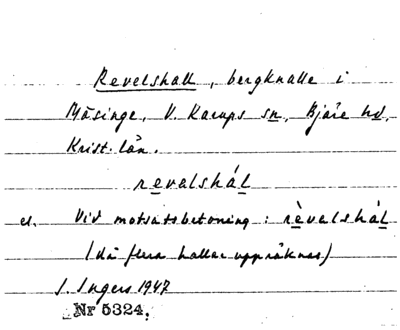 Revelshall, bergknalle i
Måsinge, V. Karups sn, Bjäre hd,
Krist. län.
revalshál
el. Vid motsatsbetoning: rèvalshál
(då flera hallar uppräknas)
I. Ingers 1947
Nr 5324.